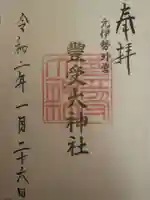 奉拝
元伊勢外宮
豊受大神社
令和二年一月二十六日